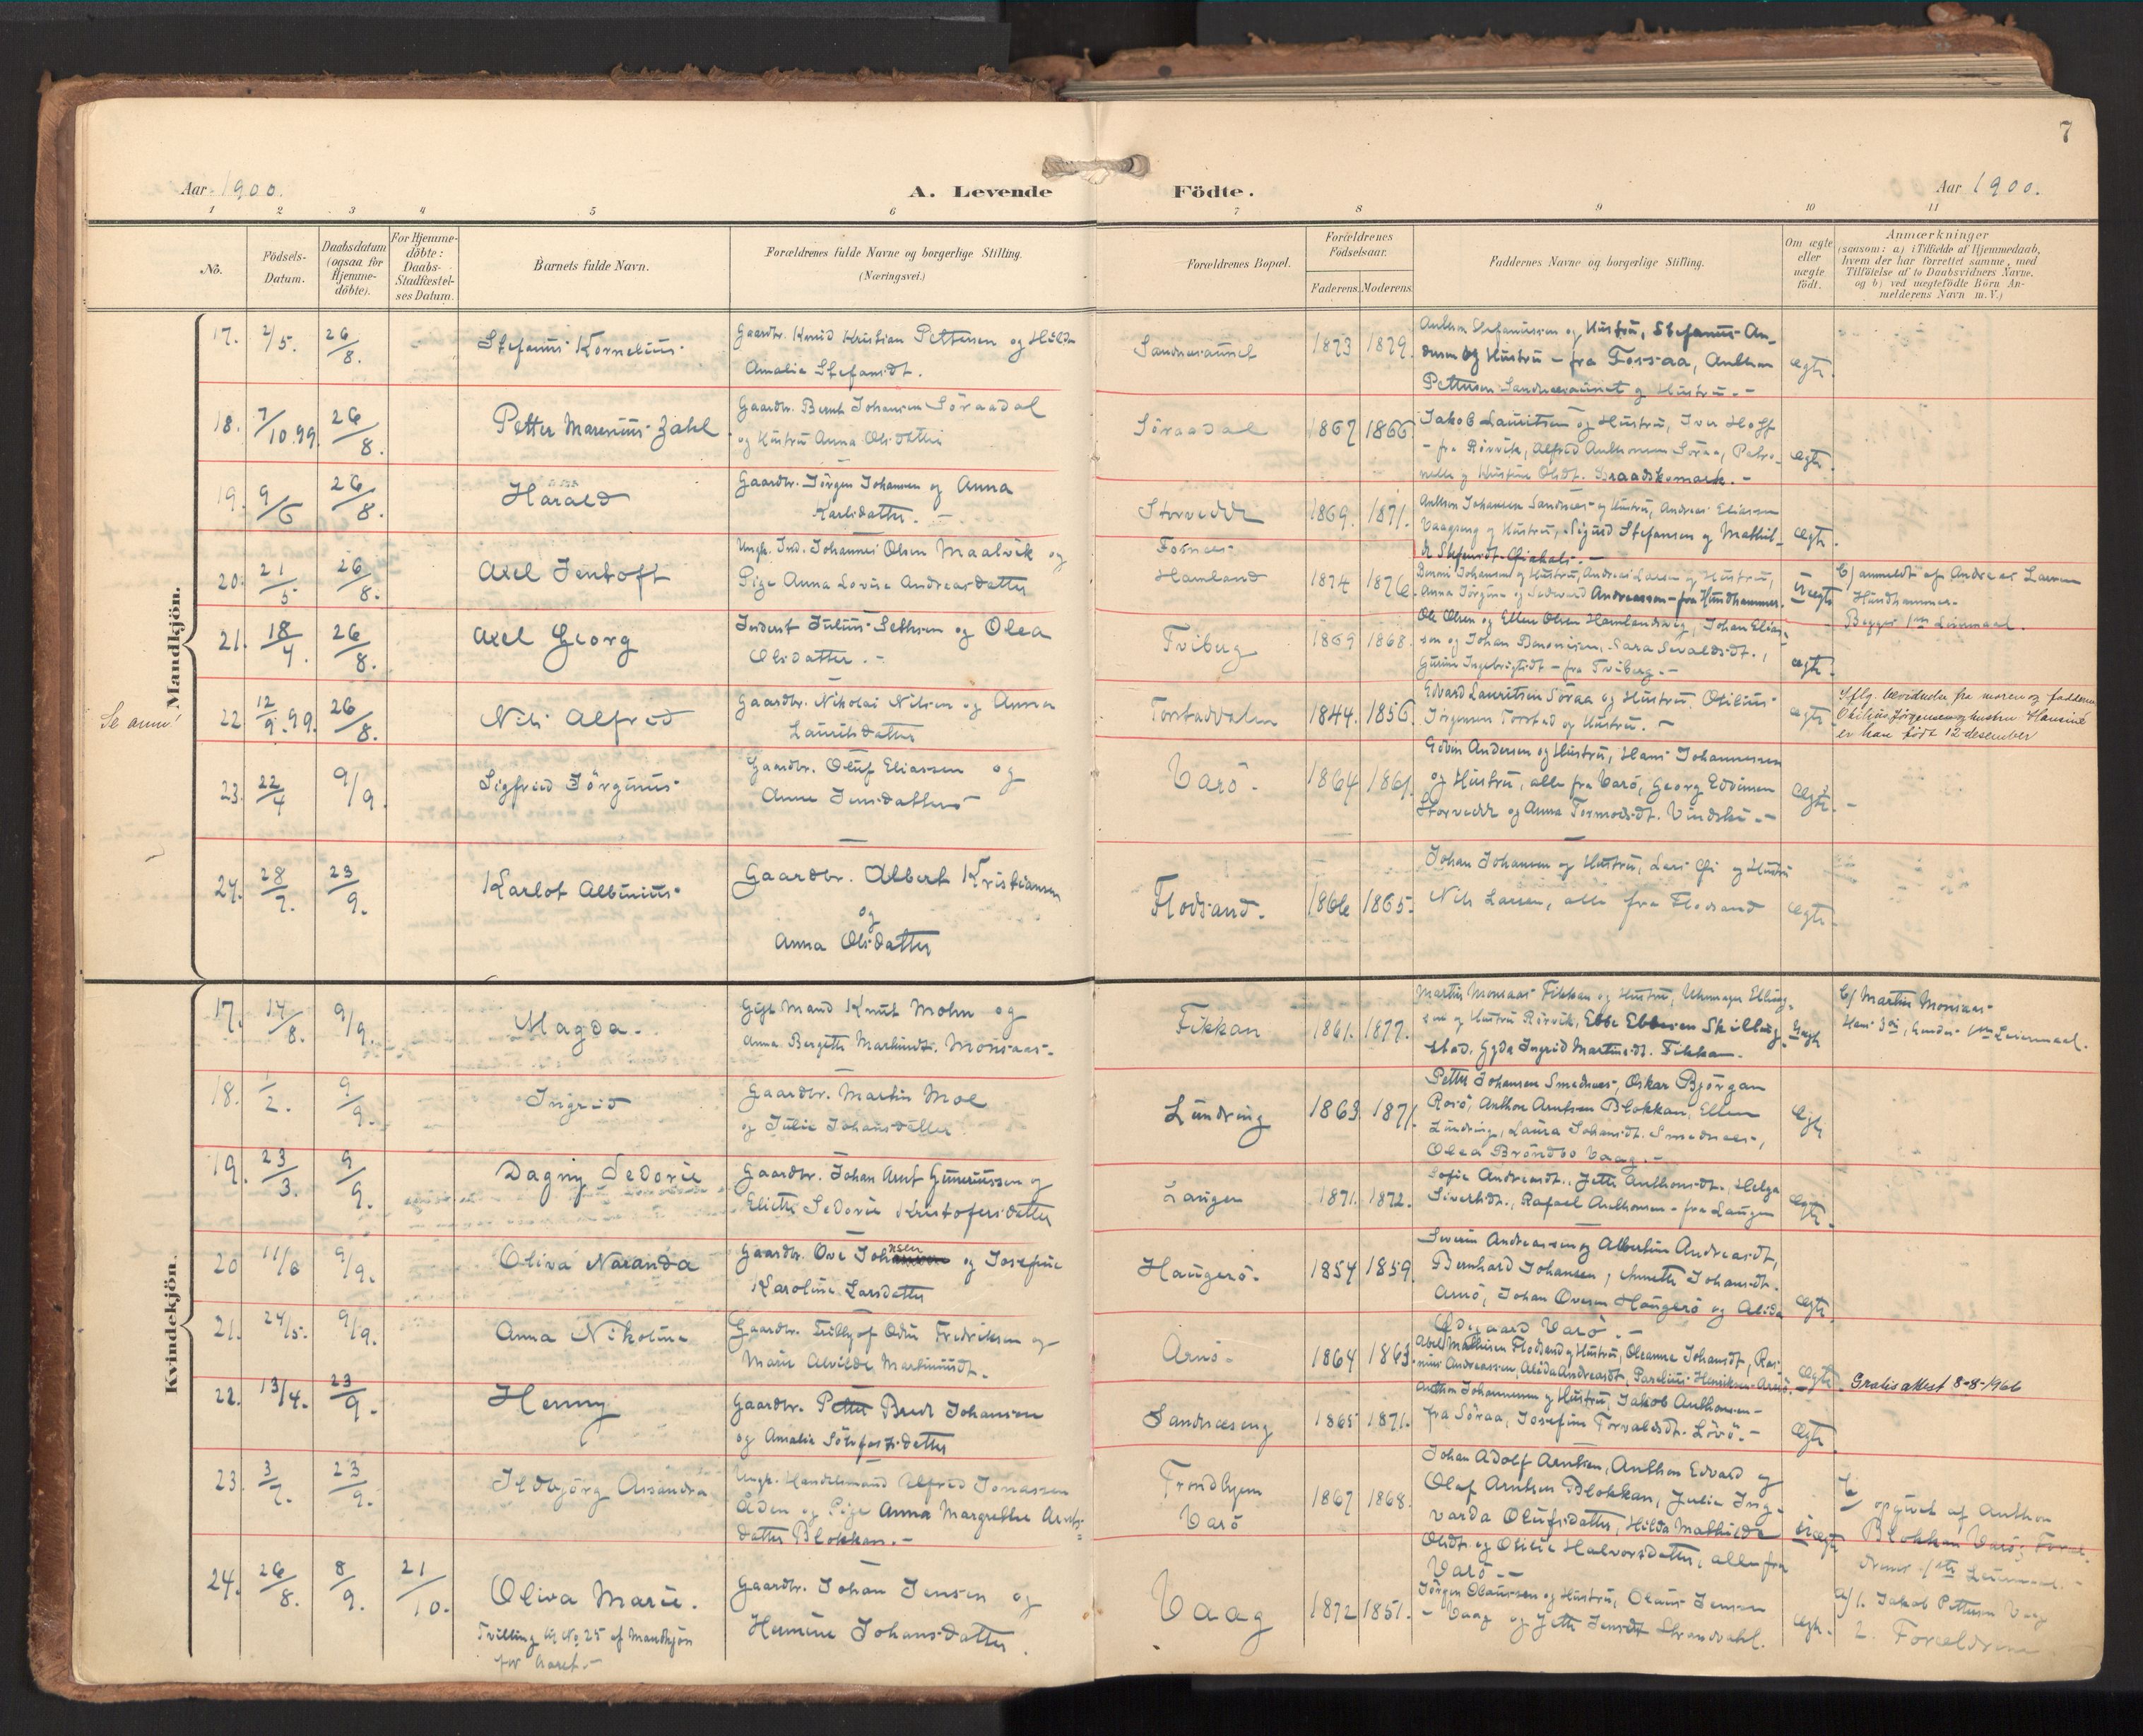 7
Aar 1900.
A. Levende Födte.
Aar 1900.
1 2 3 4 5 6 7 8 9 10 11
No.
Födsels-
Datum.
Daabsdatum
(ogsaa for
Hjemme-
döbte).
For Hjemme-
döbte:
Daabs-
Stadfæstel-
ses Datum.
Barnets fulde Navn.
Forældrenes fulde Navne og borgerlige Stilling.
(Næringsvei.)
Forældrenes Bopæl.
Forældrenes
Födselsaar.
Faderens. Moderens.
Faddernes Navne og borgerlige Stilling.
Om ægte
eller
uægte
födt.
Anmærkninger
(saasom: a) i Tilfælde af Hjemmedaab,
hvem der har forrettet samme, med
Tilföielse af to Daabsvidners Navne,
og b) ved uægtefödte Börn An-
melderens Navn m. V.)
Mandkjön.
17. 2/5. 26/8. Stefanus Kornelius
Gaardbr. Knud Kristian Pettersen og Hilda
Amalie Stefansdt.
1873 1879.
Anthon Stefanussen og Hustru, Stefanus An-
dersen og Hustru - fra Fossaa, Anthon
Pettersen Sandnesaunet og Hustru. -
ægte.
18. 7/10.99. 26/8. Petter Marenius Zahl
Gaardbr. Bernt Johansen Söraadal
og Hustru Anna Olsdatter
Söraadal 1867 1866
Jakob Lauritsen og Hustru, Iver Hoff
- fra Rörvik, Alfred Anthonsen Söraa, Petro-
ægte.
19. 9/6 26/8. Harald
Gaardbr. Jörgen Johansen og Anna
Karlsdatter. -
Storvedde 1869. 1871.
Anthon Johansen Sandnes og Hustru, Andreas Eliassen
og Hustru, Sigurd Stefansen og Mathil-
ægte.
20. 21/5 26/8. Axel Jentoft
Ungk. Ind. Johannes Olsen Maalvik og
Pige Anna Lovise Andreasdatter
Fosnes
Hamland 1874 1876.
Benoni Johansen og Hustru, Andreas Larsen og Hustru,
Anna Jörgine og Edvard Andreassen - fra Hundhammer.
uægte
b/ anmeldt af Andreas Larsen
Hundhammer.
Begges 1ste Leiermaal.
21. 18/4. 26/8. Axel Georg
Inderst Julius Sethsen og Olea
Olsdatter. -
Tviberg 1869 1868.
Ole Olsen og Ellen Olsen Hamlandsvog, Johan Elias-
sen og Johan Benonisen, Sara Sevaldsdt.,
Gurine Ingebrigtsdt - fra Tviberg. -
ægte.
Se anm!
22 12/9.99. 26/8. Nils Alfred
Gaardbr. Nikolai Nilsen og Anna
Lauritsdatter
Torstaddalen 1844. 1856
Edvard Lauritsen Söraa og Hustru, Otilius
Jörgensen Torstad og Hustru. -
ægte
Iflg. bevidnelse fra moren og faddene
Otilius Jørgensen og hustru Hansine
er han født 12 desember
23. 22/4 9/9. Sigfred Jörginus
Gaardbr. Oluf Eliassen og
Anne Jensdatter
Varö. 1864 1861.
Edvin Andersen og Hustru, Hans Johannessen
og Hustru, alle fra Varö, Georg Edvinsen
Storvedde og Anna Tormodsdt. -
ægte. -
24. 28/7. 23/9. Karlot Albinius
Gaardbr. Albert Kristiansen
og
Anna Olsdatter
Flosand. 1866 1865.
Johan Johansen og Hustru, og Hustru
Nils Larsen, alle fra Flosand
ægte
Kvindekjön.
17. 14/8. 9/9. Magda.
Gift Mand Knut Mohn og
Anna Bergette Martinsdt. Monsaas.
Fikkan 1861. 1877.
Martin Monsaas Fikkan og Hustru, Uhrmager Elling-
sen og Hustru Rörvik, Ebbe Ebbesen Skilling-
stad, Gyda Ingrid Martinsdt. Fikkan.
b/ Martin Monsaas
Hans 3die, hendes 1ste Leiermaal.
18. 1/2. 9/9. Ingrid
Gaardbr. Martin Moe
og Julie Johansdatter
Lundring 1863 1871.
Petter Johansen Smednes, Oskar Bjørgan
Rosö, Anthon Arntsen Blokkan, Ellen
Lundring, Laura Johansdt. Smednes,
Olea Bröndbo Vaag. -
ægte
19. 23/3. 9/9. Dagny Sedorie
Gaardbr. Johan Arnt Guneriussen og
Eliette Sedorie Kristofersdatter
Laugen 1871. 1872.
Sofie Andreasdt., Jette Anthonsdt., Helga
Sivertsdt., Rafael Anthonsen - fra Laugen
ægte.
20 11/6 9/9. Oliva Naranda
Gaardbr. Ove Johnsen og Josefine
Karoline Larsdatter
Haugerö. 1854 1859.
Severin Andreassen og Albertine Andreasdt,
Bernhard Johansen, Anette Johansdt.
Arnö, Johan Ovesen Haugerö og Alida
Ødegaard Varö. -
ægte.
21. 24/5. 9/9. Anna Nikoline
Gaardbr. Fritjof Odin Fredriksen og
Marie Alvilde Martinusdt.
Arnö. 1864 1863.
Axel Mathisen Flosand og Hustru, Oleanna Johansdt, Ras-
mus Andreassen, Alida Andreasdt, Parelius Henriksen Arnö.
ægte.
Gratisattest 8-8-1966
22. 13/4. 23/9. Henny
Gaardbr. Petter Bredr Johansen
og Amalie Sölvfastsdatter
Sandnæseng 1865 1871.
Anthon Johannesen og Hustru, Jakob Anthonsen
fra Söraa, Josefine Torvaldsdt. Lövö. -
ægte.
23. 3/7. 23/9. Ildbjörg Assandra
Ungk. Handelsmand Alfred Jonassen
Aden og Pige Anna Margrethe Arnts-
datter Blokkan. -
Trondhjem
Varö 1867 1868.
Johan Adolf Arntsen, Anthon Edvard og
Olaf Arntsen Blokkan, Julie Ing-
varda Olufsdatter, Hilda Mathilde
Olsdt. og Otilie Halvorsdatter, alle fra
Varö. -
uægte
b/ opgivet af Anthon
Blokkan Varö; Foræl-
drenes 1ste Leiermaal. -
24. 26/8. 8/9. 21/10. Oliva Marie.
Tvilling til No 25 af Mandkjön
for Aaret. -
Gaardbr. Johan Jensen og
Hermine Johansdatter.
Vaag 1872 1851.
Jörgen Olaussen og Hustru, Olaus Jensen
- Vaag og Jette Jensdt Strandvahl.
ægte.
a/ 1. Jakob Pettersen Vaag
2. Forældrene